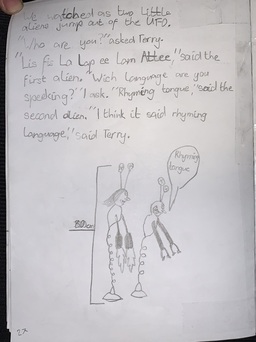 We watched as two little
aliens jump out of the UFO.
"Who are you?" asked Terry.
"Lis fis La Lap ee Lam Attee," said the
first alien. "Wich language are you
speeking?" I ask. "Rhyming tongue," said the
second alien. "I think it said rhyming
language," said Terry.
Rhyming
tongue